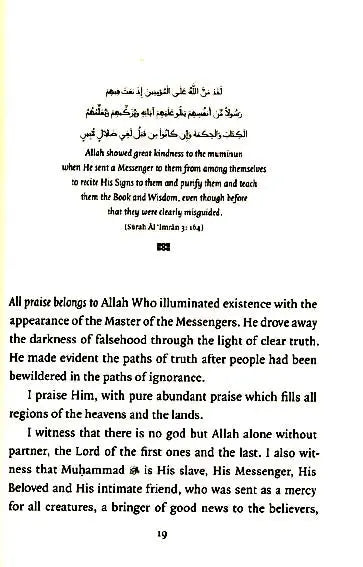 لَقَدْ مَنَّ اللَّهُ عَلَى الْمُؤْمِنِينَ إِذْ بَعَثَ فِيهِمْ
رَسُولاً مِّنْ أَنفُسِهِمْ يَتْلُو عَلَيْهِمْ آيَاتِهِ وَيُزَكِّيهِمْ وَيُعَلِّمُهُمُ
الْكِتَابَ وَالْحِكْمَةَ وَإِن كَانُوا مِن قَبْلُ لَفِي ضَلَالٍ مُّبِينٍ
Allah showed great kindness to the muminun
when He sent a Messenger to them from among themselves
to recite His Signs to them and purify them and teach
them the Book and Wisdom, even though before
that they were clearly misguided.
(Sūrah Āl ʿImrān 3: 164)
All praise belongs to Allah Who illuminated existence with the
appearance of the Master of the Messengers. He drove away
the darkness of falsehood through the light of clear truth.
He made evident the paths of truth after people had been
bewildered in the paths of ignorance.
I praise Him, with pure abundant praise which fills all
regions of the heavens and the lands.
I witness that there is no god but Allah alone without
partner, the Lord of the first ones and the last. I also wit-
ness that Muḥammad ﷺ is His slave, His Messenger, His
Beloved and His intimate friend, who was sent as a mercy
for all creatures, a bringer of good news to the believers,
19